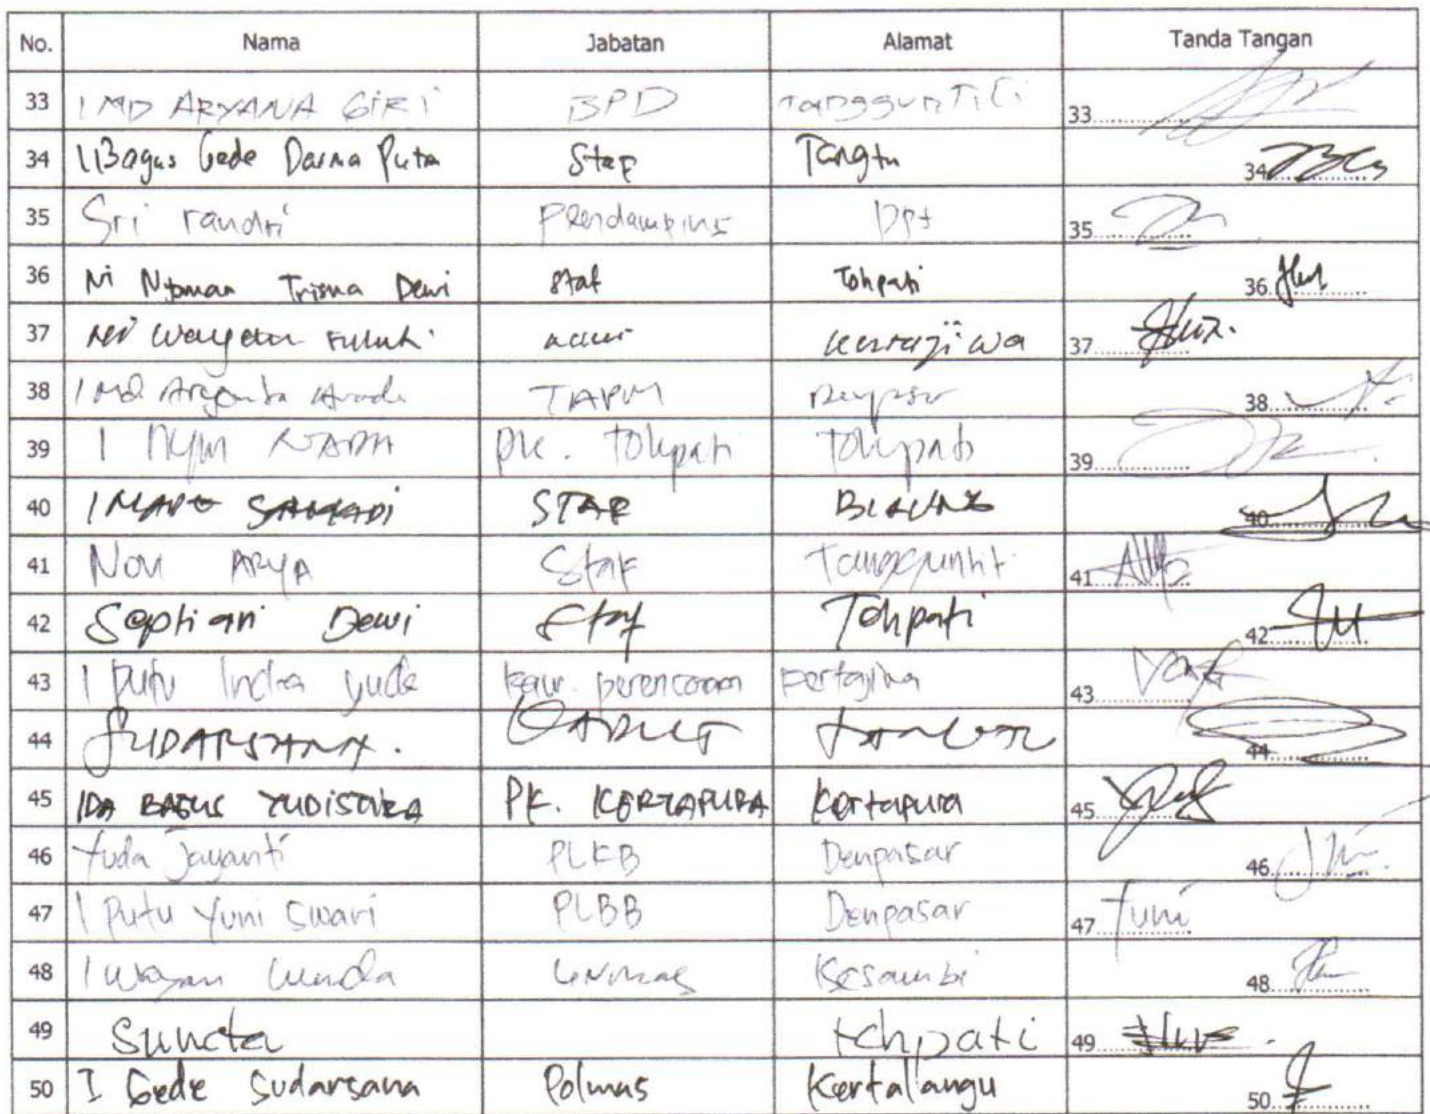 No. Nama Jabatan Alamat Tanda Tangan
33 I MD ARYANA GIRI BPD TangguntiTi 33
34 I Bagus Gede Darma Putra Staf Tangtu 34
35 Sri randri Pendamping Dps 35
36 Ni Nyoman Trisna Dewi Staf Tohpati 36
37 Ni Wayan kertajiwa 37
38 I Md TAPM Denpasar 38
39 I Nym NADA PK. Tohpati Tohpati 39
40 I MADE STAF BIAUNG 40
41 Novi ARYA Staf Tangguntiti 41
42 Septiari Dewi Staf Tohpati 42
43 I Putu Indra Yuda kaur. perencanaan kertajiwa 43
44 SUDARSANA. 44
45 IDA BAGUS YUDISTIRA PK. KERTAPURA Kertapura 45
46 Yuda Jayanti PLKB Denpasar 46
47 I Putu Yuni Swari PLBB Denpasar 47 Yuni
48 I Wayan Linmas Kesambi 48
49 Suncta tohpati 49
50 I Gede Sudarsana Polmas Kertalangu 50